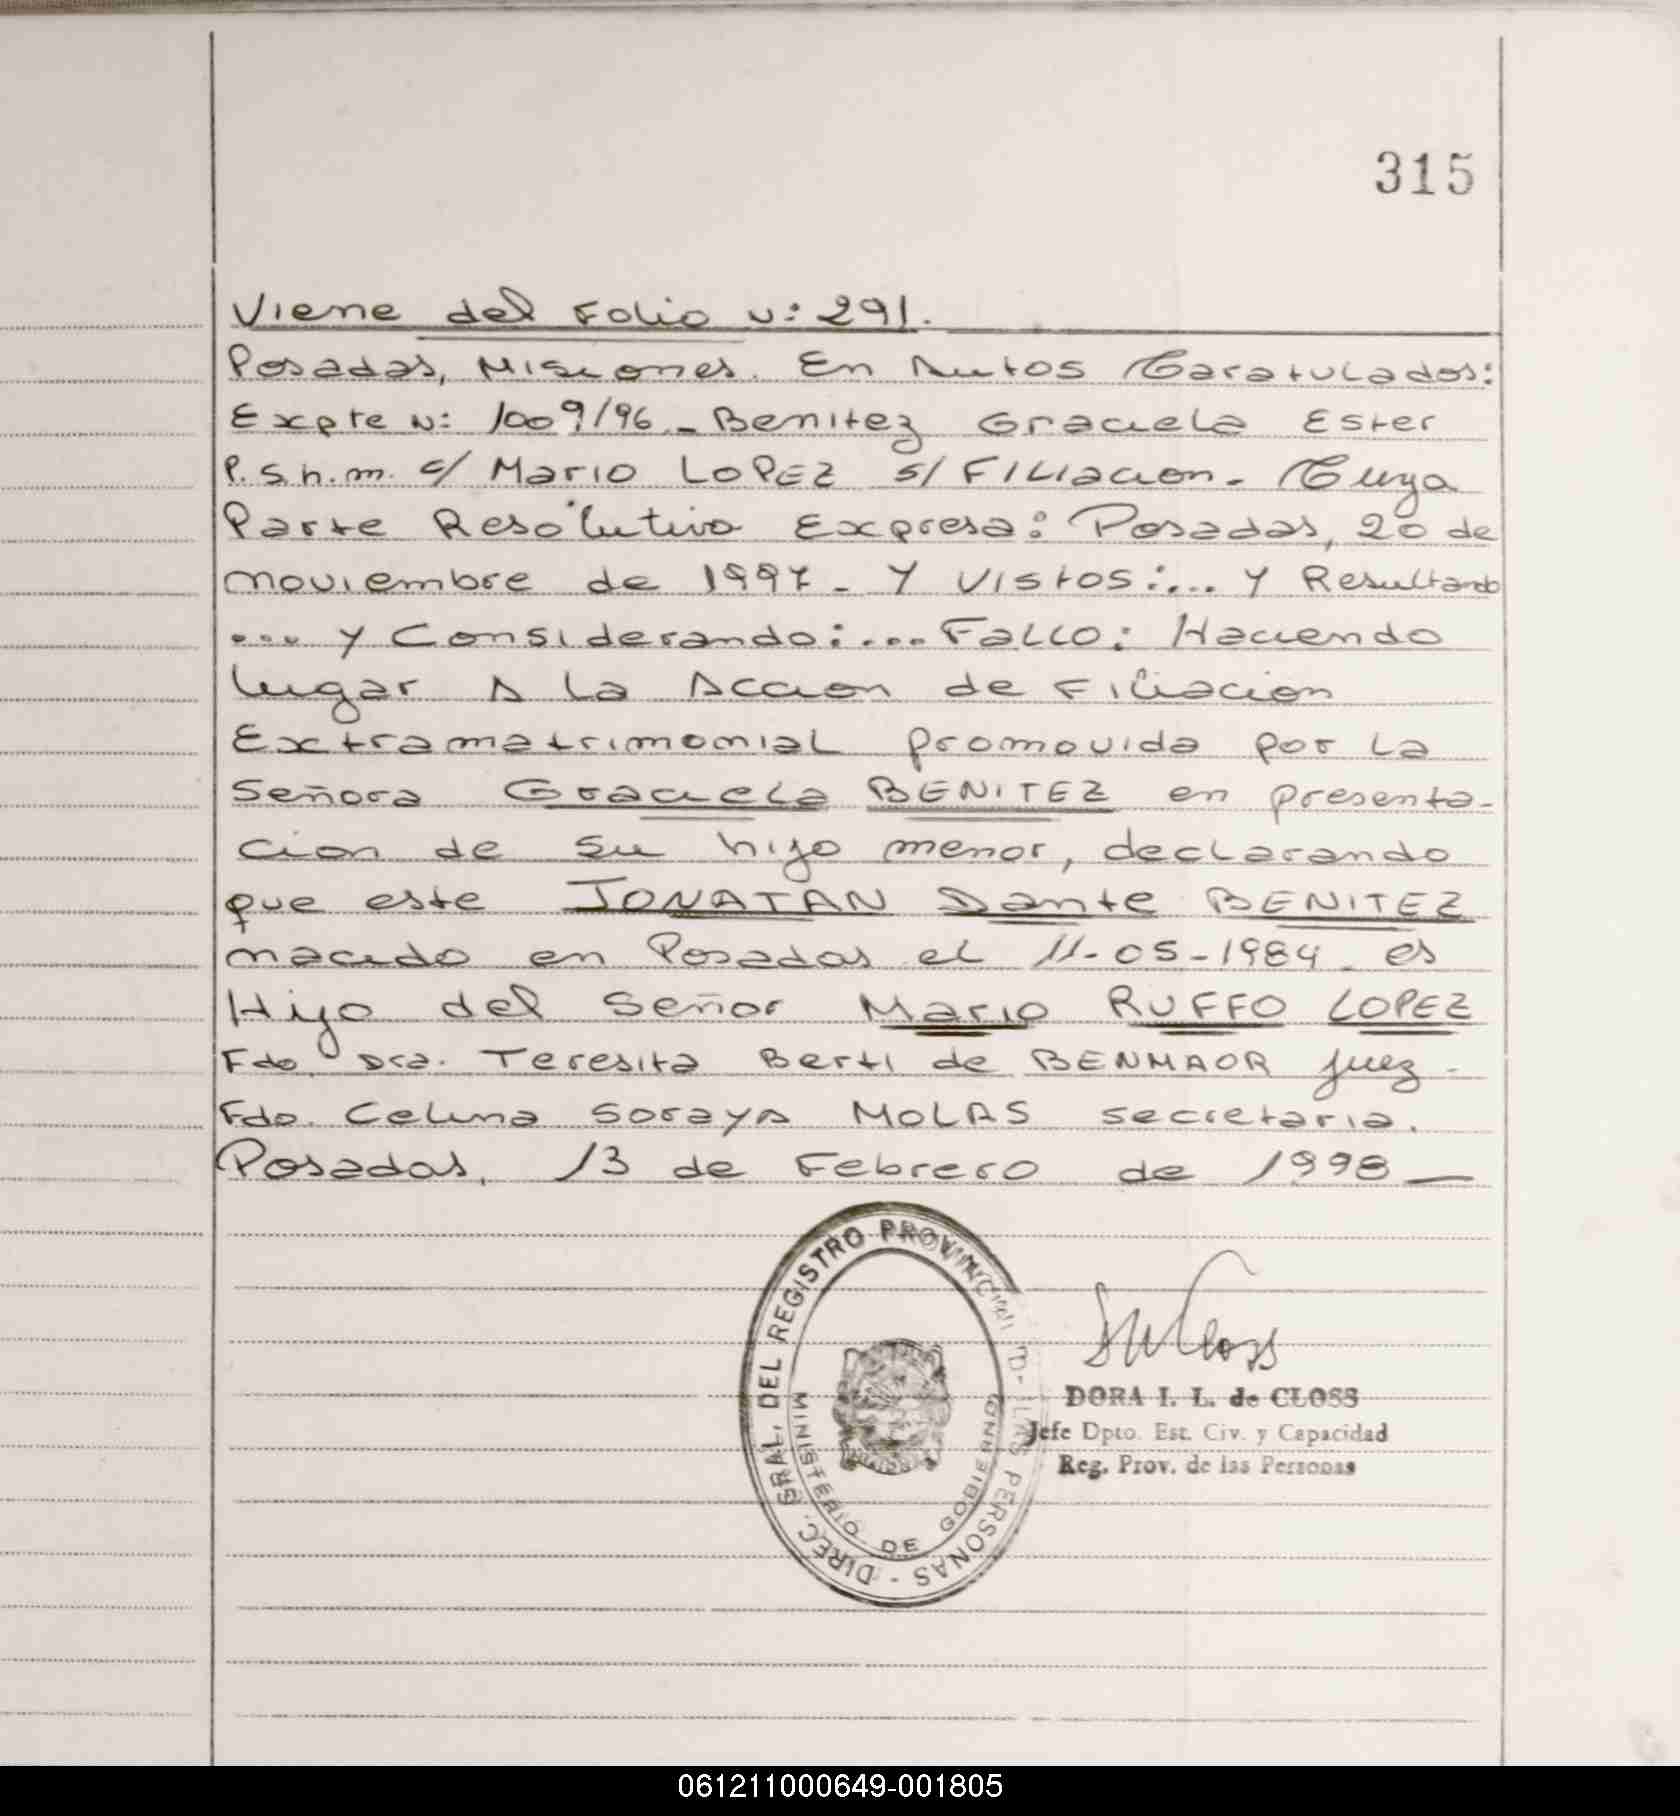 315
Viene del Folio N: 291.
Posadas, Misiones. En Autos Caratulados:
Expte N: 1009/96 - Benitez Graciela Ester
P.S.h.m. c/ Mario LOPEZ s/ FILIACION. Cuya
Parte Resolutiva Expresa: Posadas, 20 de
noviembre de 1997 - Y Vistos:... Y Resultando
... y Considerando:... Fallo: Haciendo
lugar A la Accion de Filiación
Extramatrimonial promovida por la
Señora Graciela BENITEZ en presenta-
cion de su hijo menor, declarando
que este JONATAN Dante BENITEZ
nacido en Posadas el 11-05-1984 es
Hijo del Señor Mario RUFFO LOPEZ
Fdo. Dra. Teresita Berti de BENMAOR juez -
Fdo. Celina Soraya MOLAS secretaria.
Posadas, 13 de Febrero de 1998 —
DIREC. GRAL. DEL REGISTRO PROVINCIAL D- LAS PERSONAS -
MINISTERIO DE GOBIERNO
DORA I. L. de CLOSS
Jefe Dpto. Est. Civ. y Capacidad
Reg. Prov. de las Personas
061211000649-001805